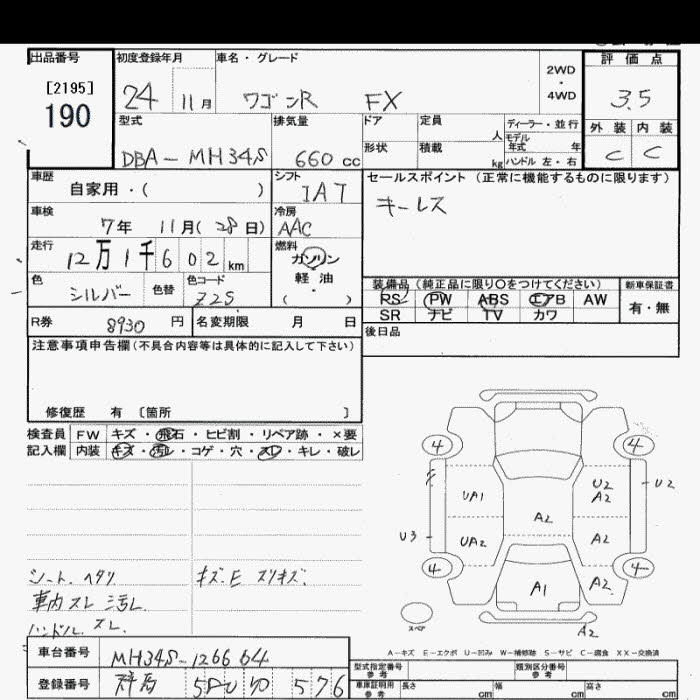 出品番号
[2195]
190
初度登録年月
24 11月
車名・グレード
ワゴンR FX
2WD
・
4WD
評価点
3.5
外装 内装
C C
型式
DBA-MH34S
排気量
660 cc
ドア
形状
定員
人
積載
kg
ディーラー・並行
モデル
年式 年
ハンドル 左・右
車歴
自家用・( )
シフト
IAT
セールスポイント(正常に機能するものに限ります)
キーレス
車検
7年 11月(28日)
冷房
AAC
走行
12万1千602km
燃料
ガソリン
軽油
( )
色
シルバー
色替
色コード
Z2S
装備品(純正品に限り○をつけてください)
RS PW ABS エアB AW
SR ナビ TV カワ
新車保証書
有・無
R券 8930 円
名変期限 月 日
後日品
注意事項申告欄(不具合内容等は具体的に記入して下さい)
修復歴 有 〔箇所 〕
検査員
記入欄
FW キズ・飛石・ヒビ割・リペア跡・×要
内装 キズ・汚レ・コゲ・穴・スレ・キレ・破レ
シート.ヘタリ
キズ.E スリキズ.
車内スレ汚レ
ハンドル.スレ.
4 4
UA1
U2
A2
U2
A2
U3
UA2
A2
4 4
A1
A2
スペア
A2
A-キズ E-エクボ U-凹み W-補修跡 S-サビ C-腐食 XX-交換済
車台番号
MH34S-126664
登録番号
群馬 580 576
型式指定番号
参考
類別区分番号
参考
車庫証明用
参考
長さ cm
幅 cm
高さ cm